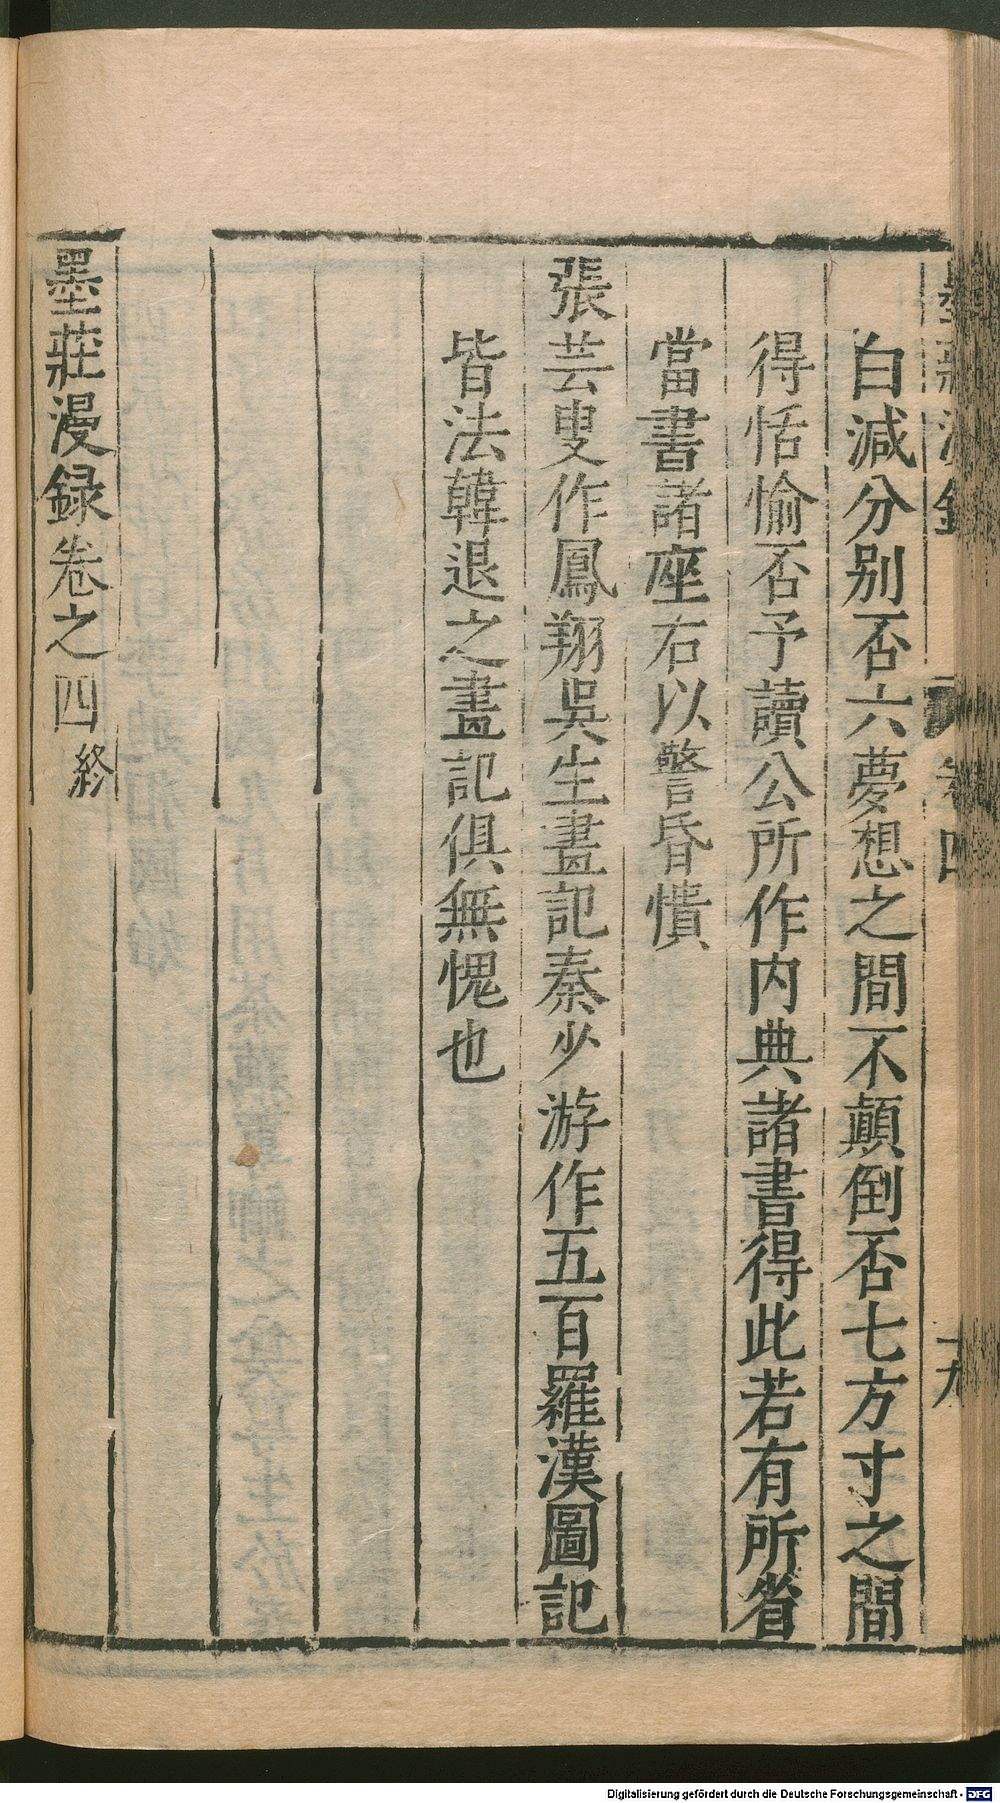 白減分别否六夢想之間不顛倒否七方寸之間
得恬愉否予讀公所作内典諸書得此若有所省
當書諸座右以警昏憒
張芸叟作鳳翔吳生畫記秦少游作五百羅漢圖記
皆法韓退之畫記俱無愧也
墨莊漫録卷之四終
Digitalisierung gefördert durch die Deutsche Forschungsgemeinschaft - DFG